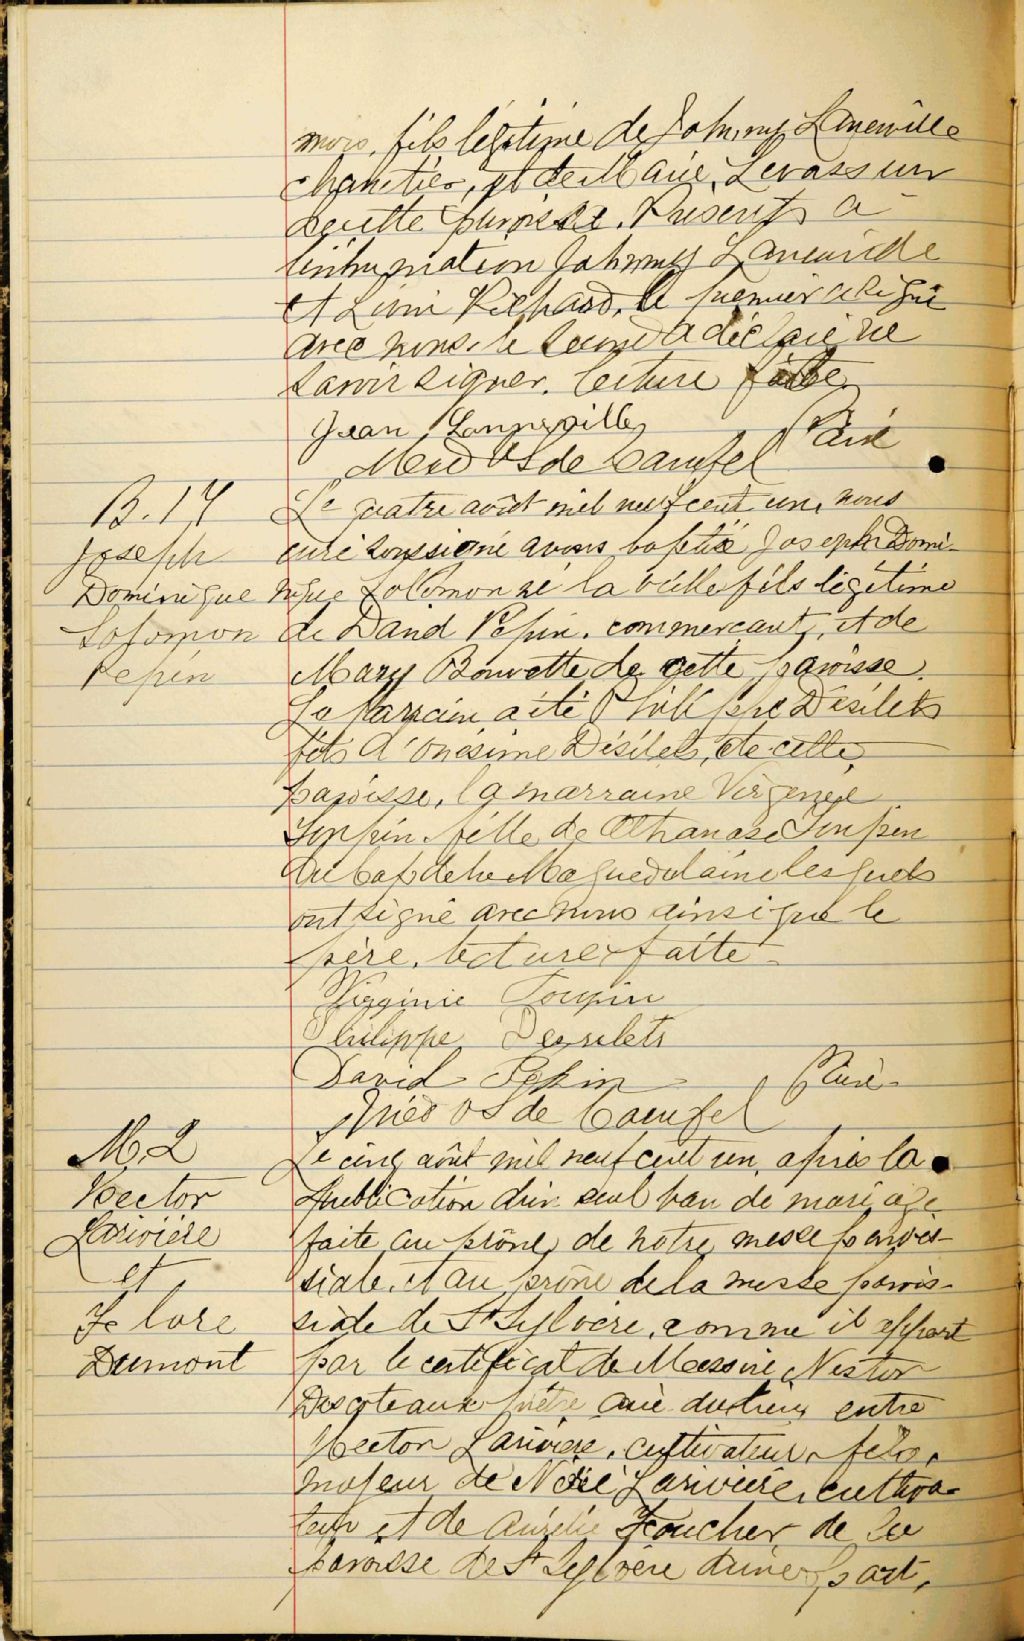 mois, fils légitime de Johnny Laneuville
charretier, et de Marie Levasseur
de cette paroisse. Présents à
l'inhumation Johnny Laneuville
et Livin Richard, le premier a signé
avec nous, le second a déclaré ne
savoir signer. lecture faite
Jean Lanneville
Med OS de Carufel Curé
B. 17
Joseph
Dominique
Solomon
Pepin
Le quatre août mil neuf cent un, nous
curé soussigné avons baptisé Joseph Domi-
nique Solomon né la veille fils légitime
de David Pepin, commerçant, et de
Mary Bouvette de cette paroisse.
Le parrain a été Philippe Désilets
fils d'Onésime Désilets, de cette
paroisse, la marraine Virginie
Toupin fille de Athanase Toupin
du Cap de la Maguedelaine lesquels
ont signé avec nous ainsi que le
père. lecture faite
Virginie Toupin
Philippe Desilets
David Pepin
Med OS de Carufel Curé
M. 2
Hector
Larivière
et
Flore
Dumont
Le cinq août mil neuf cent un, après la
publication d'un seul ban de mariage
faite au prône de notre messe parois-
siale, et au prône de la messe parois-
siale de St Sylvère, comme il appert
par le certificat de Messire Nestor
Descoteaux prêtre curé du lieu, entre
Hector Larivière, cultivateur, fils
majeur de Noé Larivière, cultiva-
teur et de Aurélie Foucher de la
paroisse de St Sylvère d'une part,